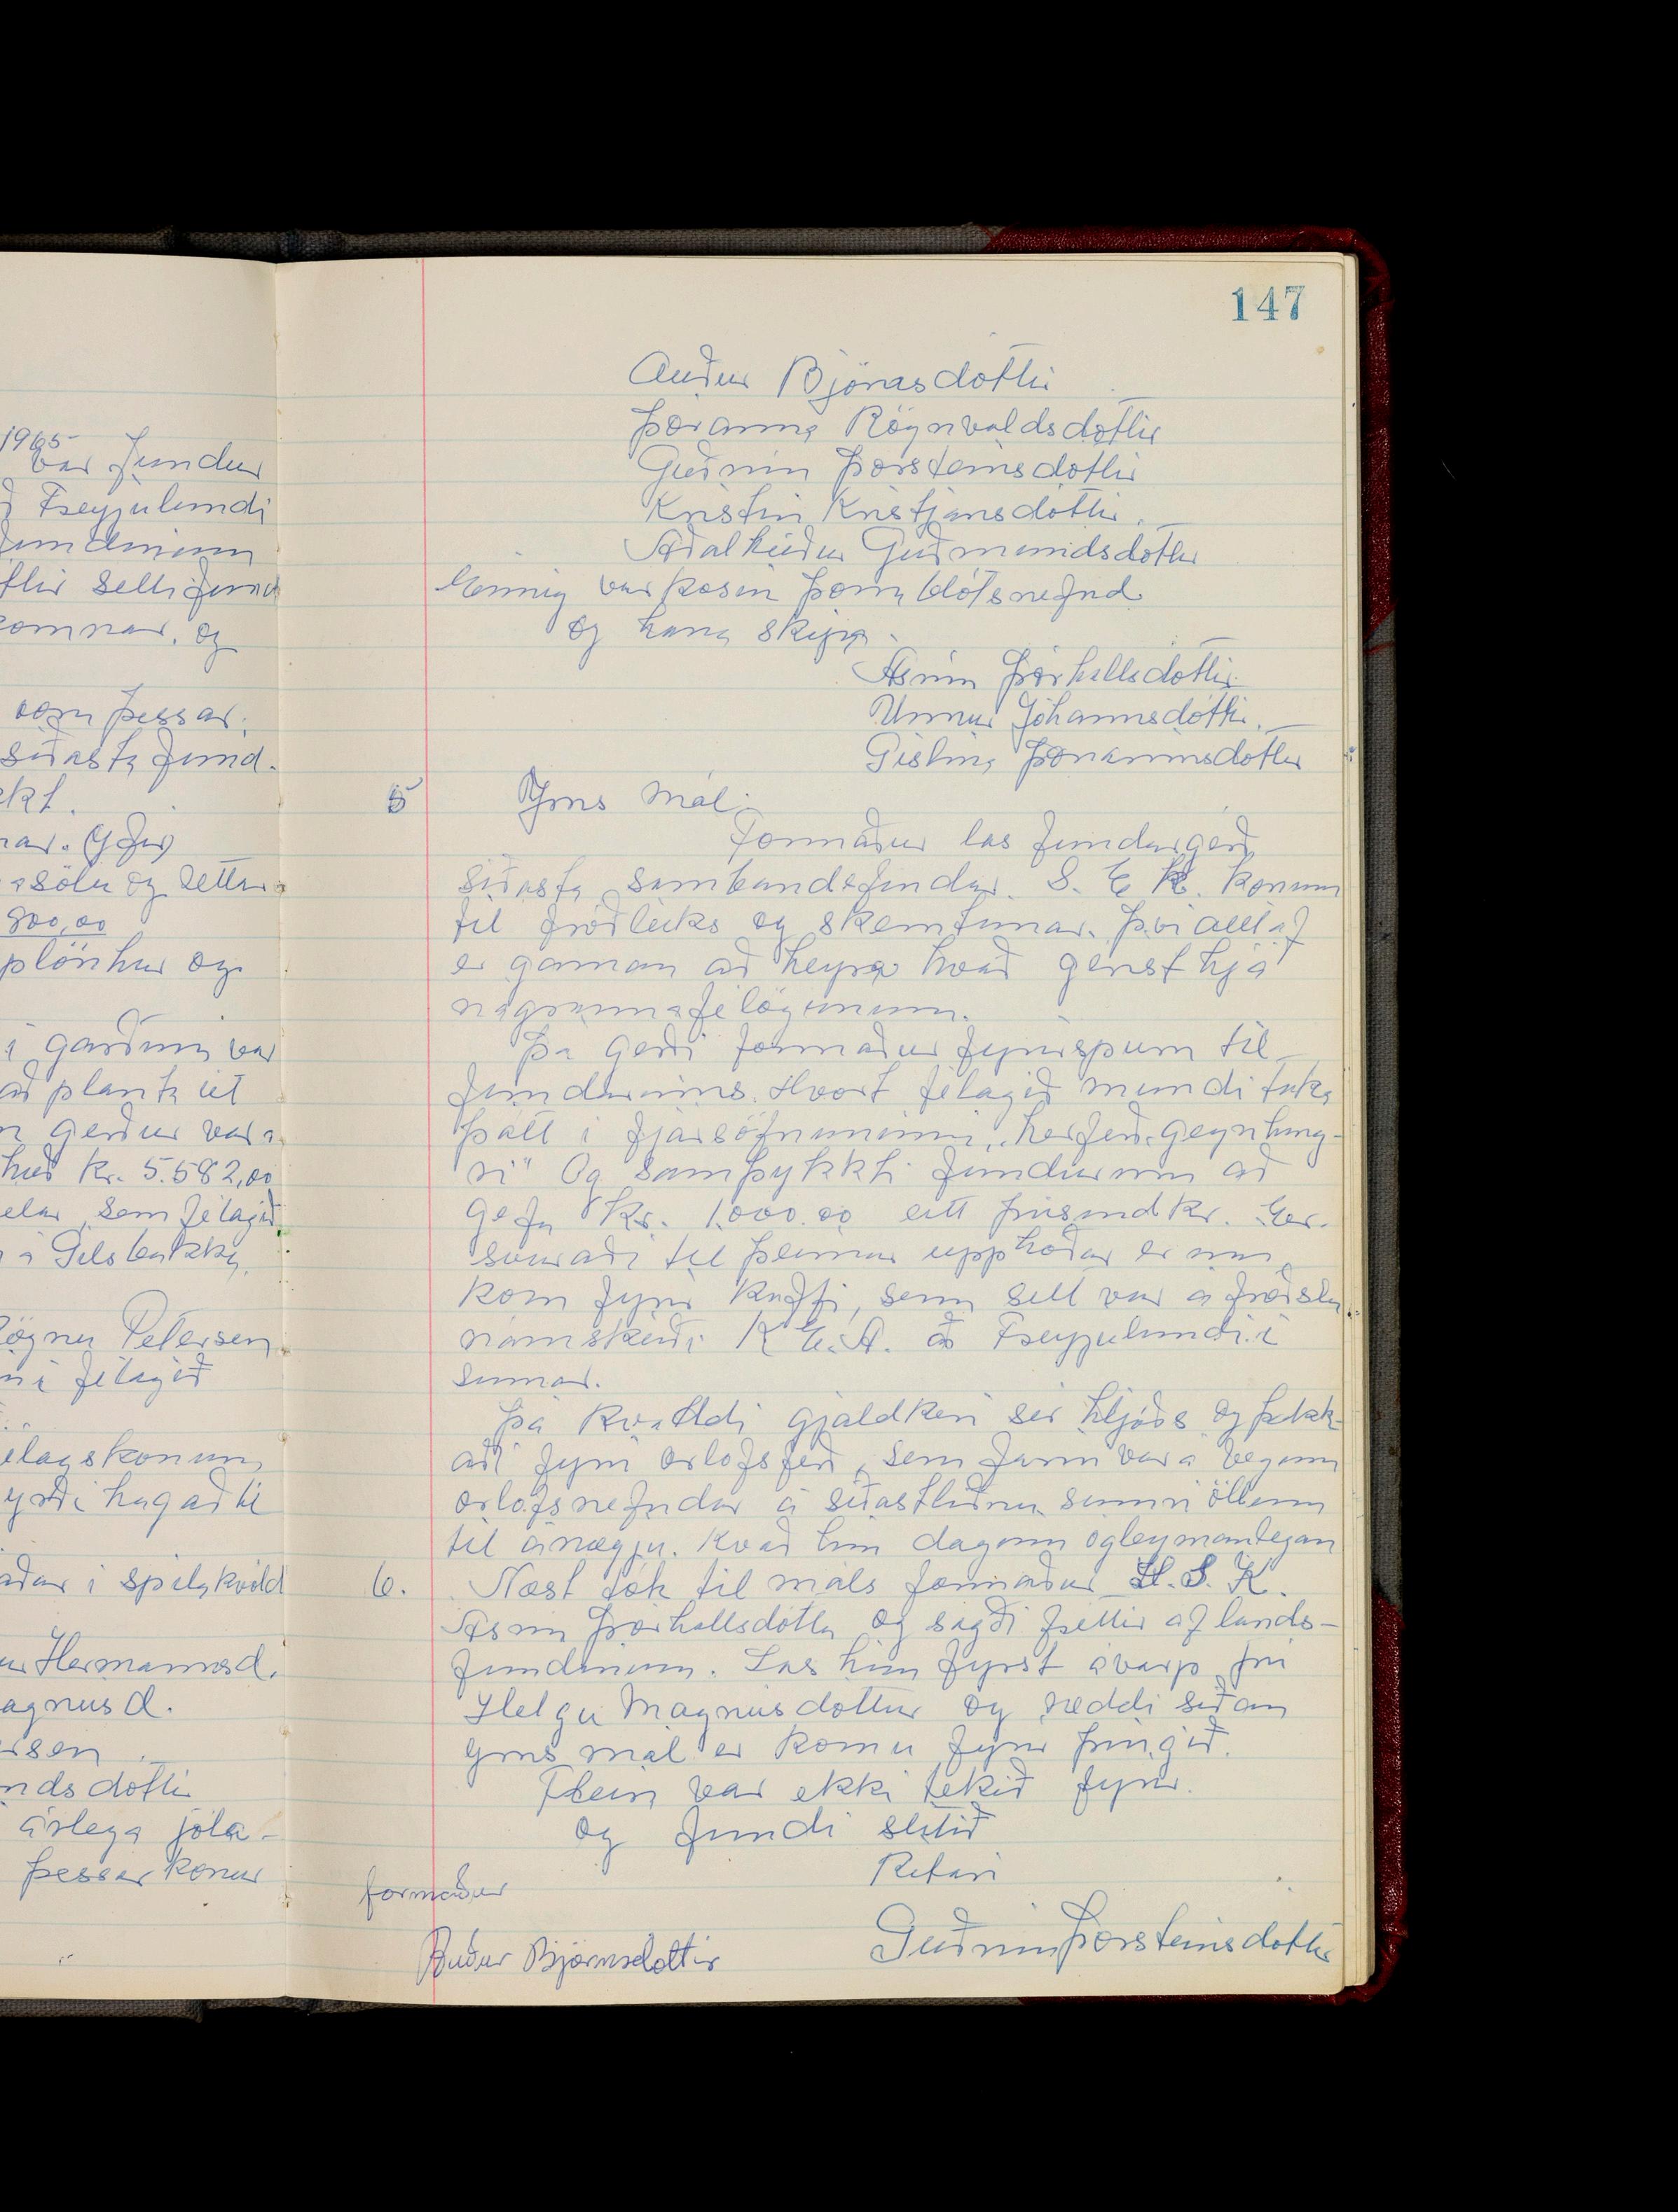 1965
var fundur
Freyjulundi
fundinum
ftir selli fund
komnar, og
som þessar.
siðasta fund.
ekt.
nar. Gefur
asölu og rettar
800,00
plönhur og
i garðinn var
að planta út
n gerður var a
hus kr. 5.582,00
elar sem félagið
á Gilsbakka
Rögnu Petersen
n i félagið
élagskonum
ysti hagað til
aðar i spilakvöld
ur Hermannsd.
agnusd.
rsen
nds dottir
árlega jóla-
þessar konur
147
Auður Björnsdottir
Þóranna Rögnvaldsdottir
Guðrún Þorsteinsdottir
Kristín Kristjánsdóttir.
Aðalheiður Guðmundsdottir
Einnig var kosin þorrablótsnefnd
og hana skipa.
Asrún Þórhallsdóttir
Unnur Jóhannsdóttir.
Gíslína Þorvarunsdottir
5 Yms mál.
Formaður las fundargerð
siðasta sambandsfundar. S. E. K. konum
til fróðleiks og skemtunar. Því alltaf
er gaman að heyra hvað gerist hjá
nágrannafélögunum.
Þá gerði formaður fyrirspurn til
fundarinns. Hvort félagið mundi taka
þátt i fjársöfnuninni „herferð gegn hung-
ri" Og samþykkti fundurinn að
gefa kr. 1.000.00 eitt þúsund kr. Er
svarar til þeirrar upphæðar er inn
kom fyrir kaffi, sem sellt var á fræðslu
námskeiði K E.A. á Freyjulundi í
sumar.
Þá kvaddi gjaldkeri sér hljóðs og þakk-
aði fyrir orlofsferð, sem farin var á vegum
orlofsnefndar á siðastliðnu sumri öllum
til ánægju. Kvað hún daginn ógleymanlegan
6. Næst tók til máls formaður H. S. K.
Asrún Þórhallsdóttir og sagði fréttir af lands-
fundinum. Las hún fyrst ávarp frá
Helgu Magnúsdottur og ræddi siðan
yms mál er komu fyrir þingið.
Fleira var ekki tekið fyrir.
og fundi slitið
Ritari
formaður
Guðrún Þorsteinsdottir
Auður Björnsdóttir